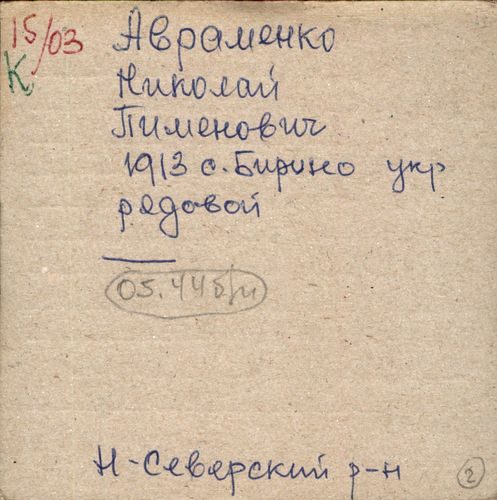 15/03
К
Авраменко
Николай
Пименович
1913 с. Бирино укр
рядовой
05.44 б/и
Н-Северский р-н
2